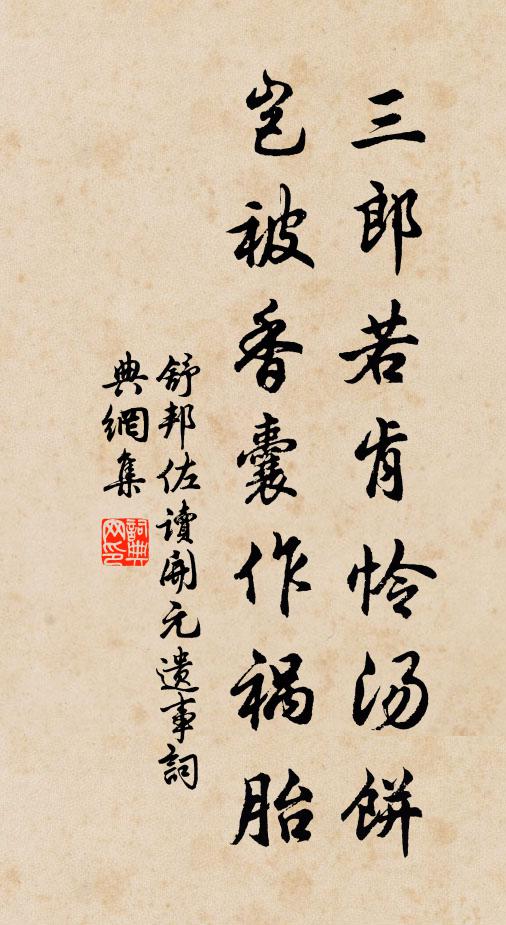 三郎若肯怜汤餅
岂被香囊作祸胎
舒邦佐讀開元遗事詞
典網集
詞典網印